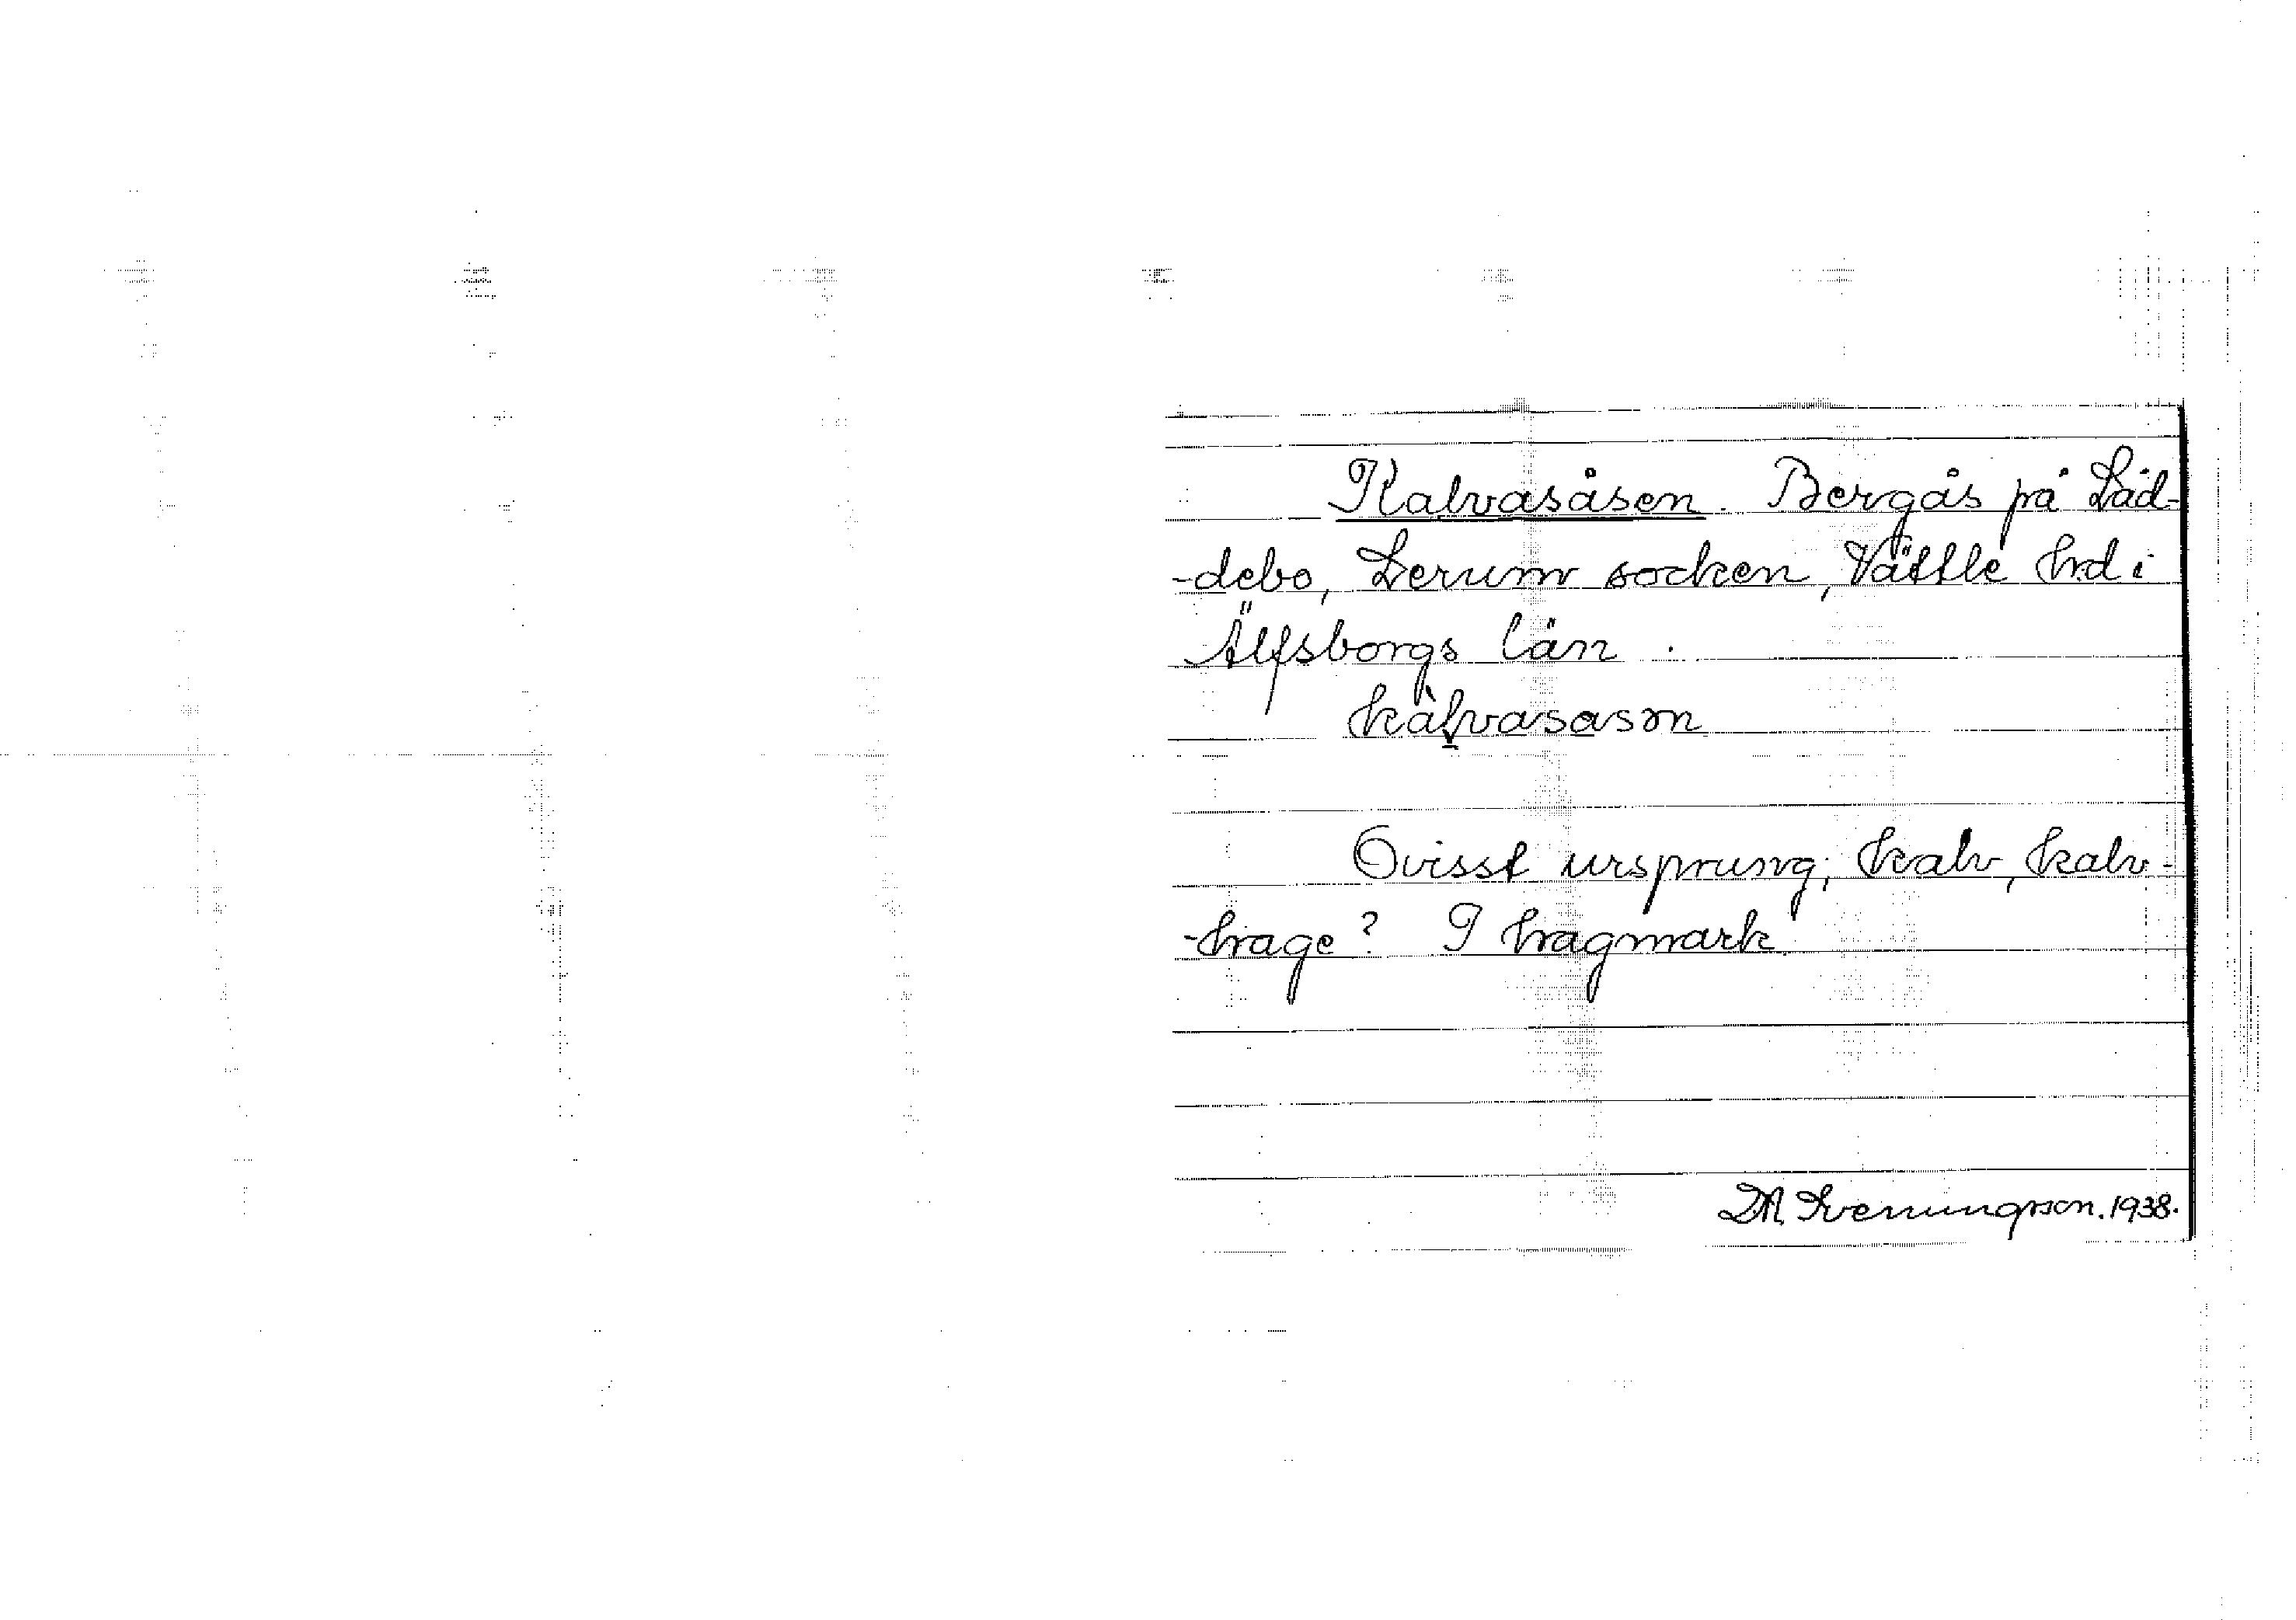 Kalvasåsen. Bergås på Läd-
-debo, Lerum socken, Vättle hrd i
Älfsborgs län.
kàlvasasən
Ovisst ursprung; kalv, kalv-
-hage? I hagmark.
1938.